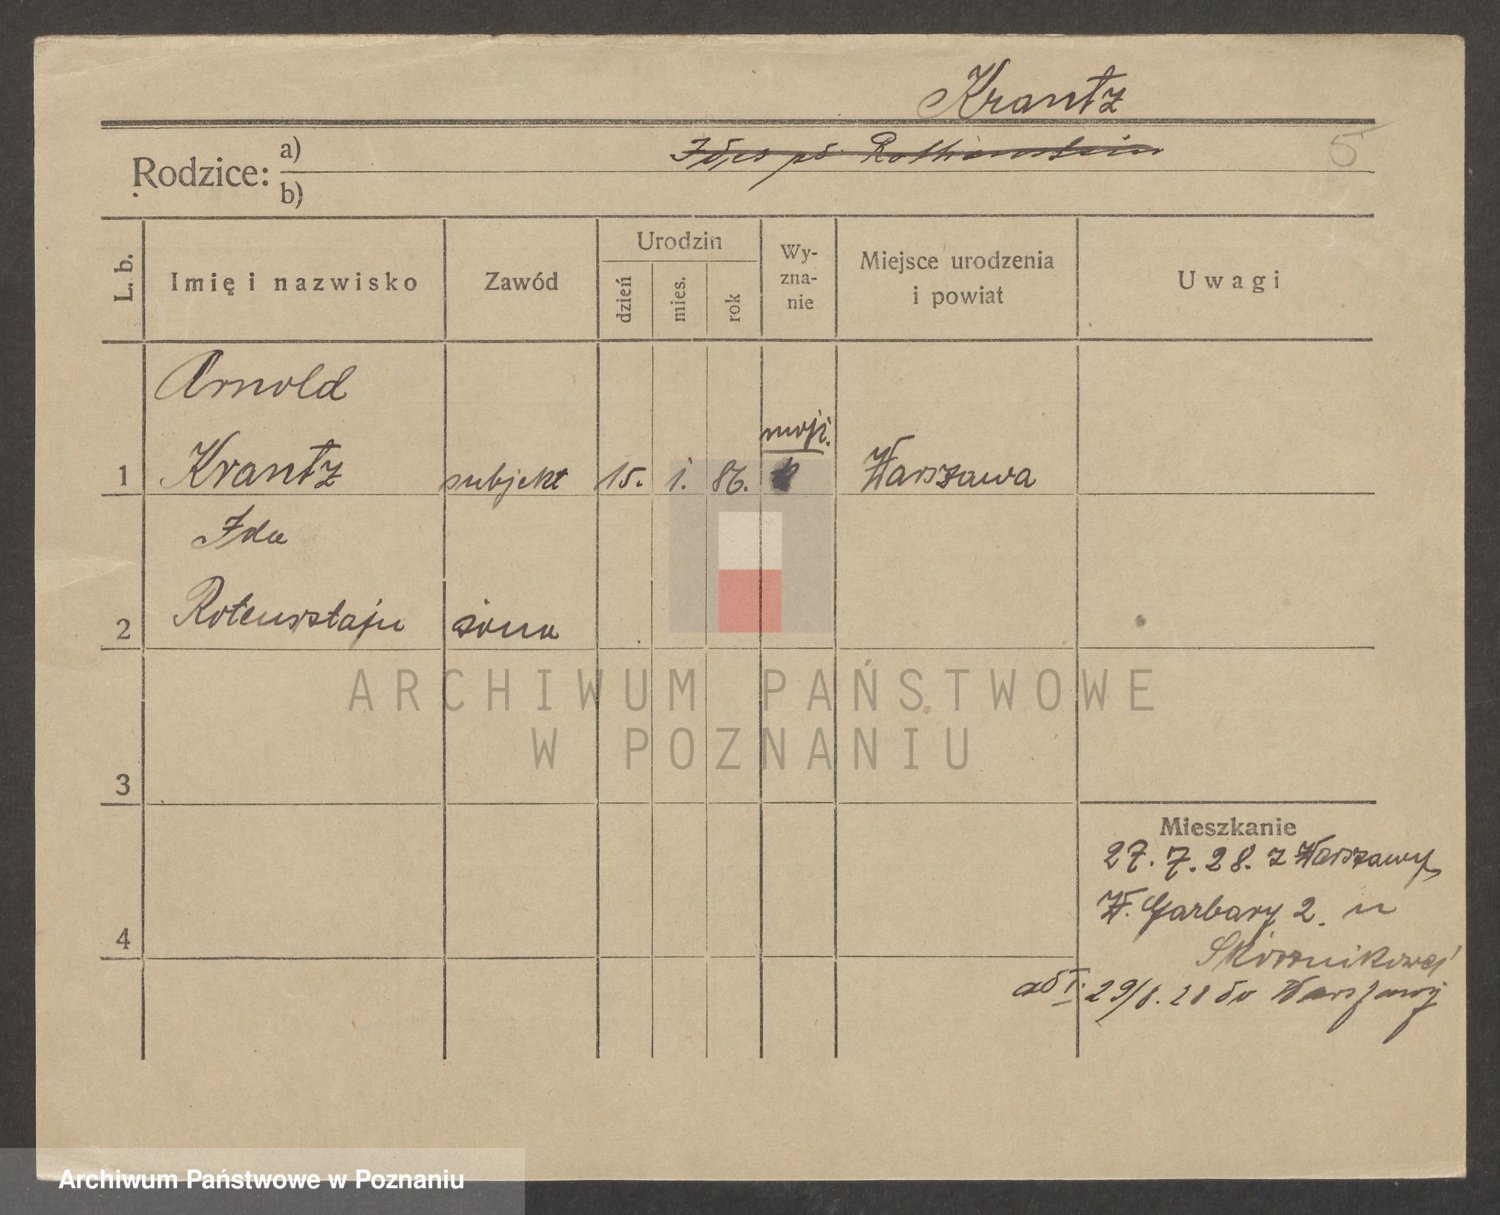 Krantz
Rodzice: a)
b)
5
L. b.
Imię i nazwisko
Zawód
Urodzin
dzień
mies.
rok
Wy-
zna-
nie
Miejsce urodzenia
i powiat
Uwagi
Arnold
mojż.
1 Krantz subjekt 15. 1. 86. Warszawa
Ida
2 Rotensztajn żona
3
4
Mieszkanie
27. 7. 28. z Warszawy
W. Garbary 2. u
Skórnikowej
ad I. 29/8. 28 do Warszawy
ARCHIWUM PAŃSTWOWE
W POZNANIU
Archiwum Państwowe w Poznaniu